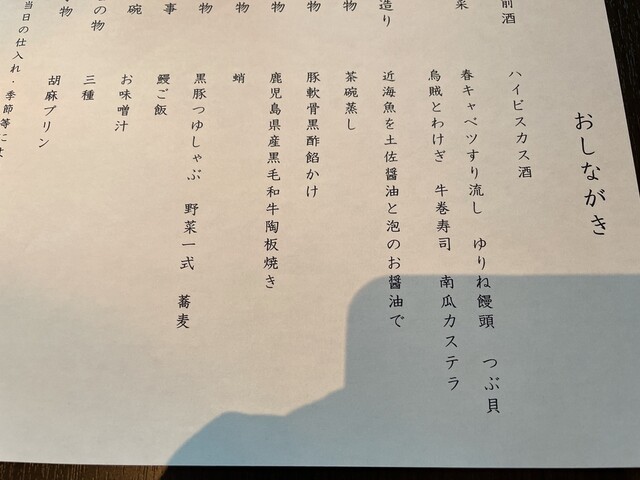 おしながき
前酒
ハイビスカス酒
菜
春キャベツすり流し ゆりね饅頭 つぶ貝
烏賊とわけぎ 牛巻寿司 南瓜カステラ
造り
近海魚を土佐醤油と泡のお醤油で
物
茶碗蒸し
物
豚軟骨黒酢餡かけ
物
鹿児島県産黒毛和牛陶板焼き
物
蛸
物
黒豚つゆしゃぶ 野菜一式 蕎麦
事
鰻ご飯
碗
お味噌汁
の物
三種
物
胡麻プリン
当日の仕入れ・季節等に